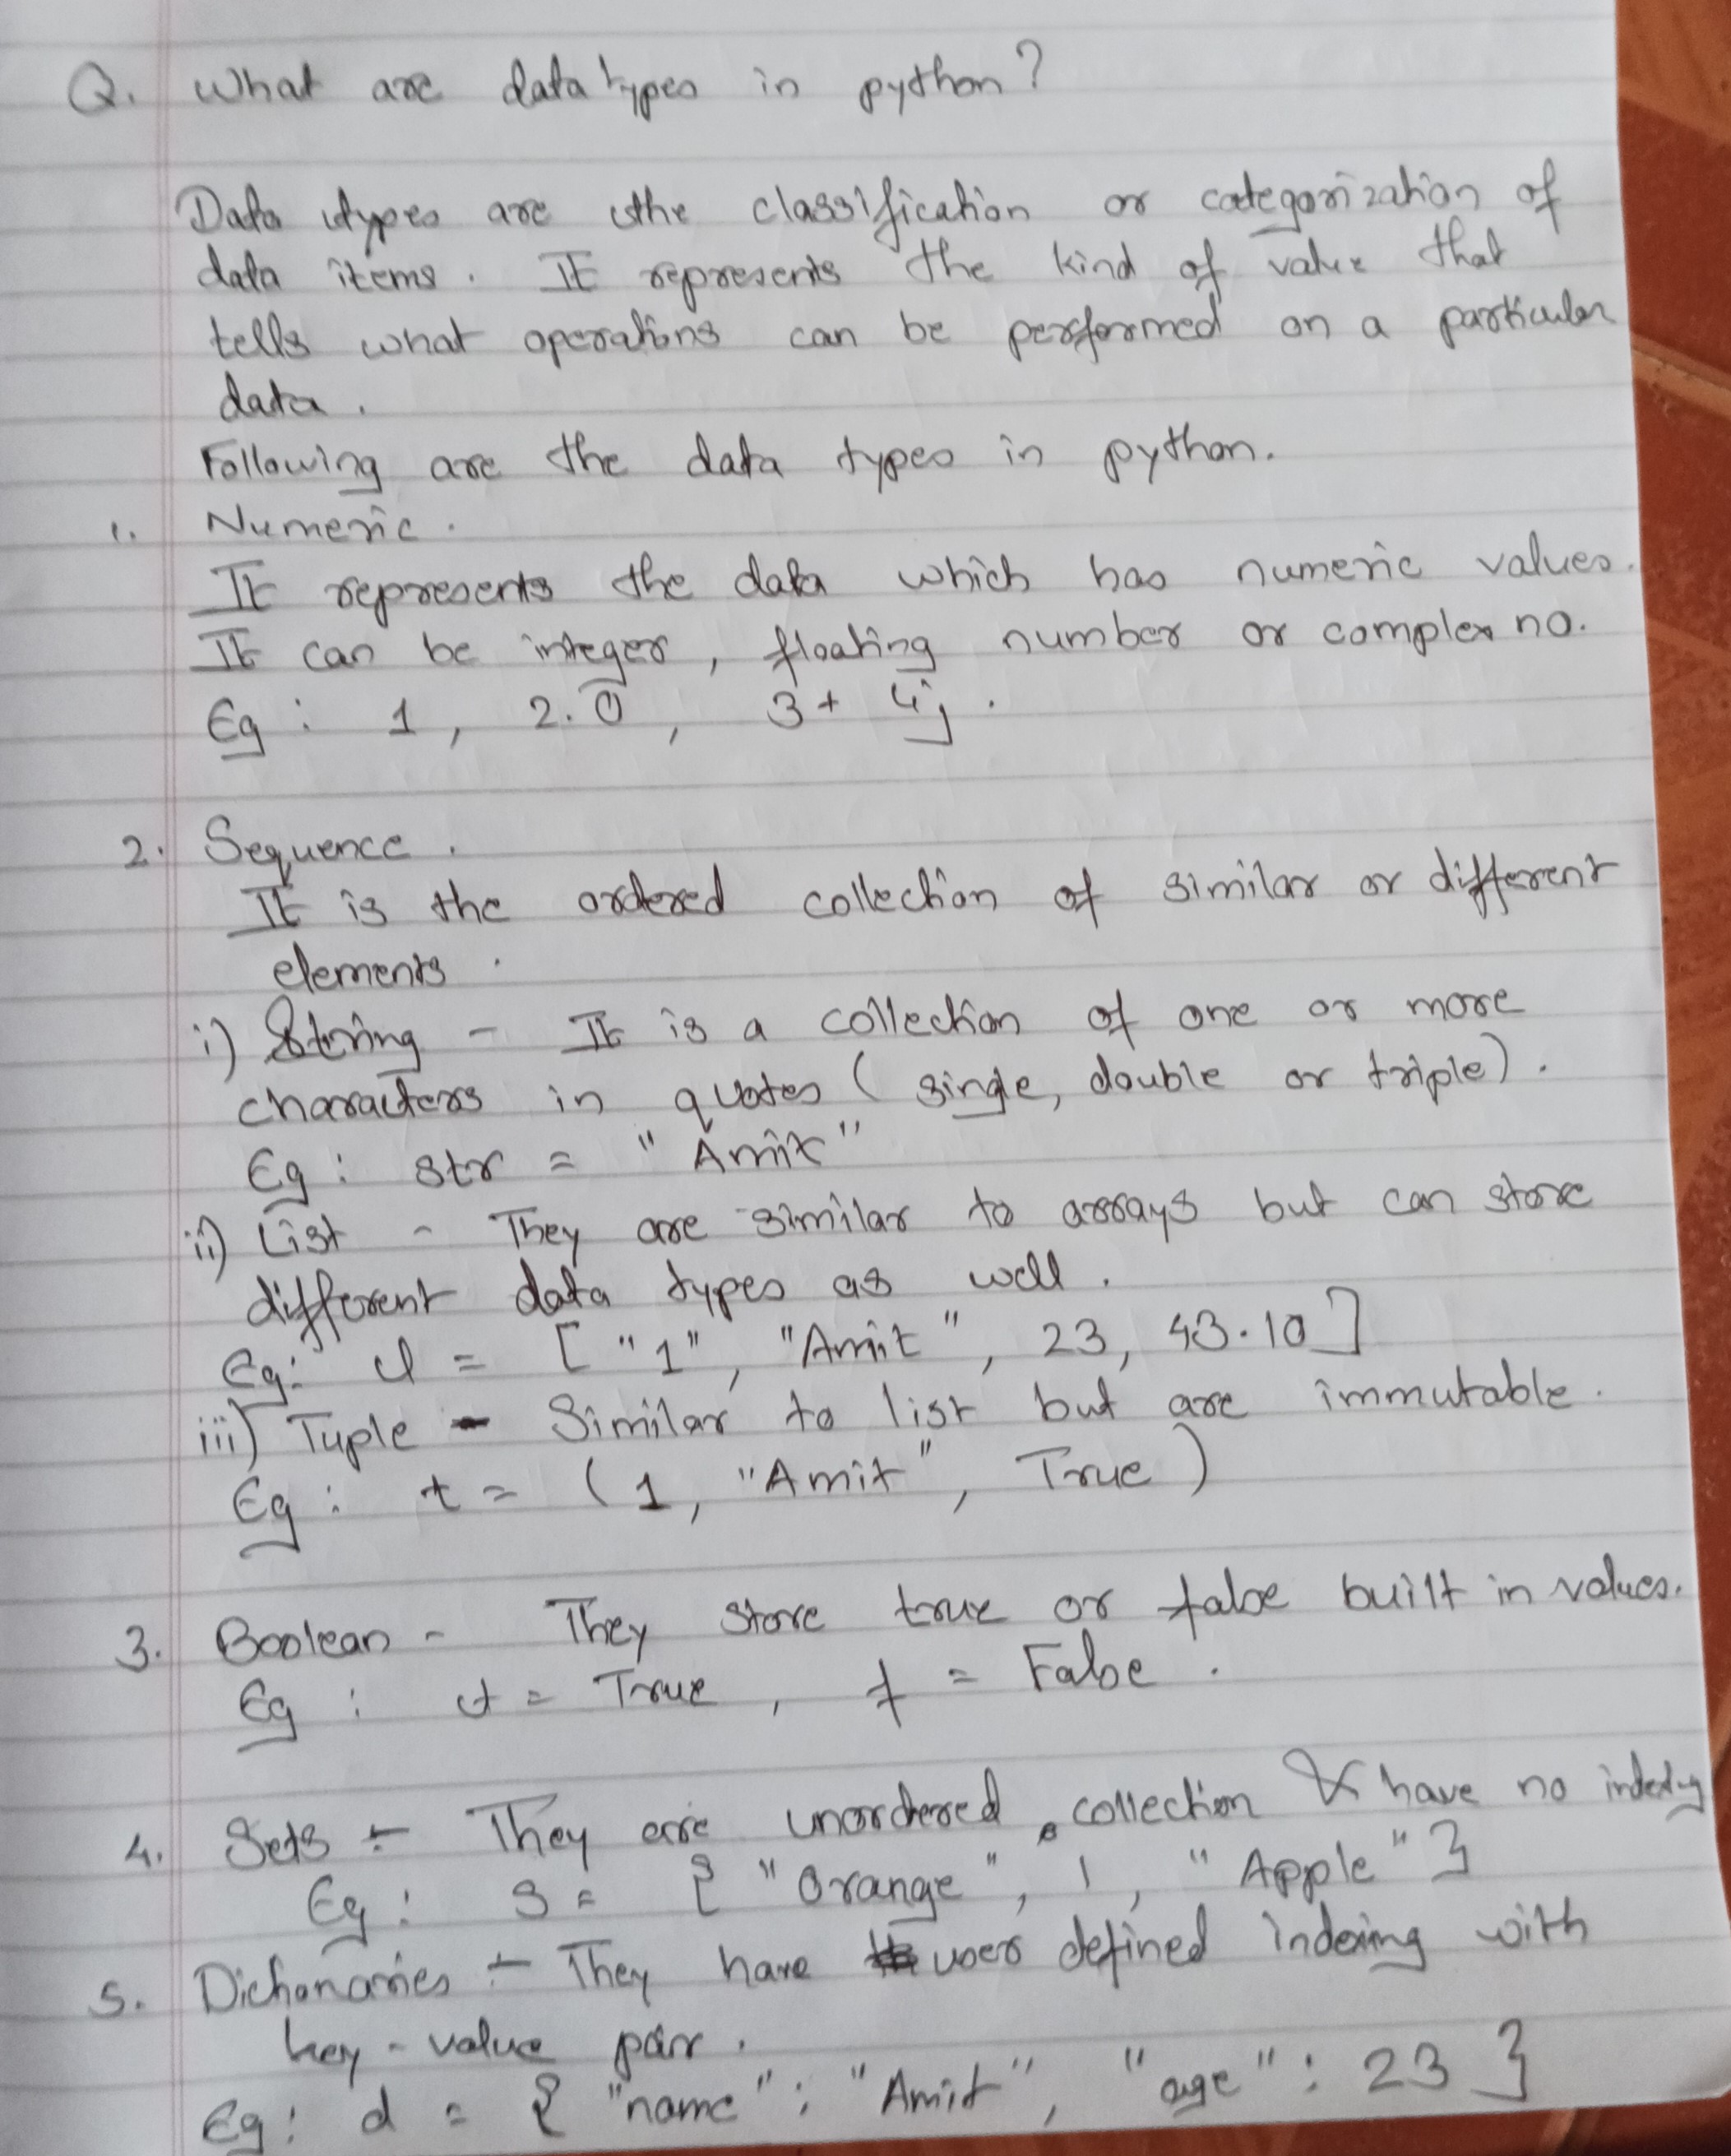 Q. What are data types in python?
Data types are the classification or categorization of
data items. It represents the kind of value that
tells what operations can be performed on a particular
data.
Following are the data types in python.
1. Numeric.
It represents the data which has numeric values.
It can be integer, floating number or complex no.
Eg : 1, 2.0, 3+ 4j.
2. Sequence.
It is the ordered collection of similar or different
elements.
i) String - It is a collection of one or more
characters in quotes (single, double or triple).
Eg : str = "Amit"
ii) List - They are similar to arrays but can store
different data types as well.
Eg: l = ["1", "Amit", 23, 43.10]
iii) Tuple - Similar to list but are immutable.
Eg : t = (1, "Amit", True)
3. Boolean - They store true or false built in values.
Eg : t = True, f = False.
4. Sets :- They are unordered collection & have no indexing
Eg : s = {"Orange", 1, "Apple"}
5. Dictionaries :- They have user defined indexing with
key - value pair.
Eg : d = {"name" : "Amit", "age" : 23}